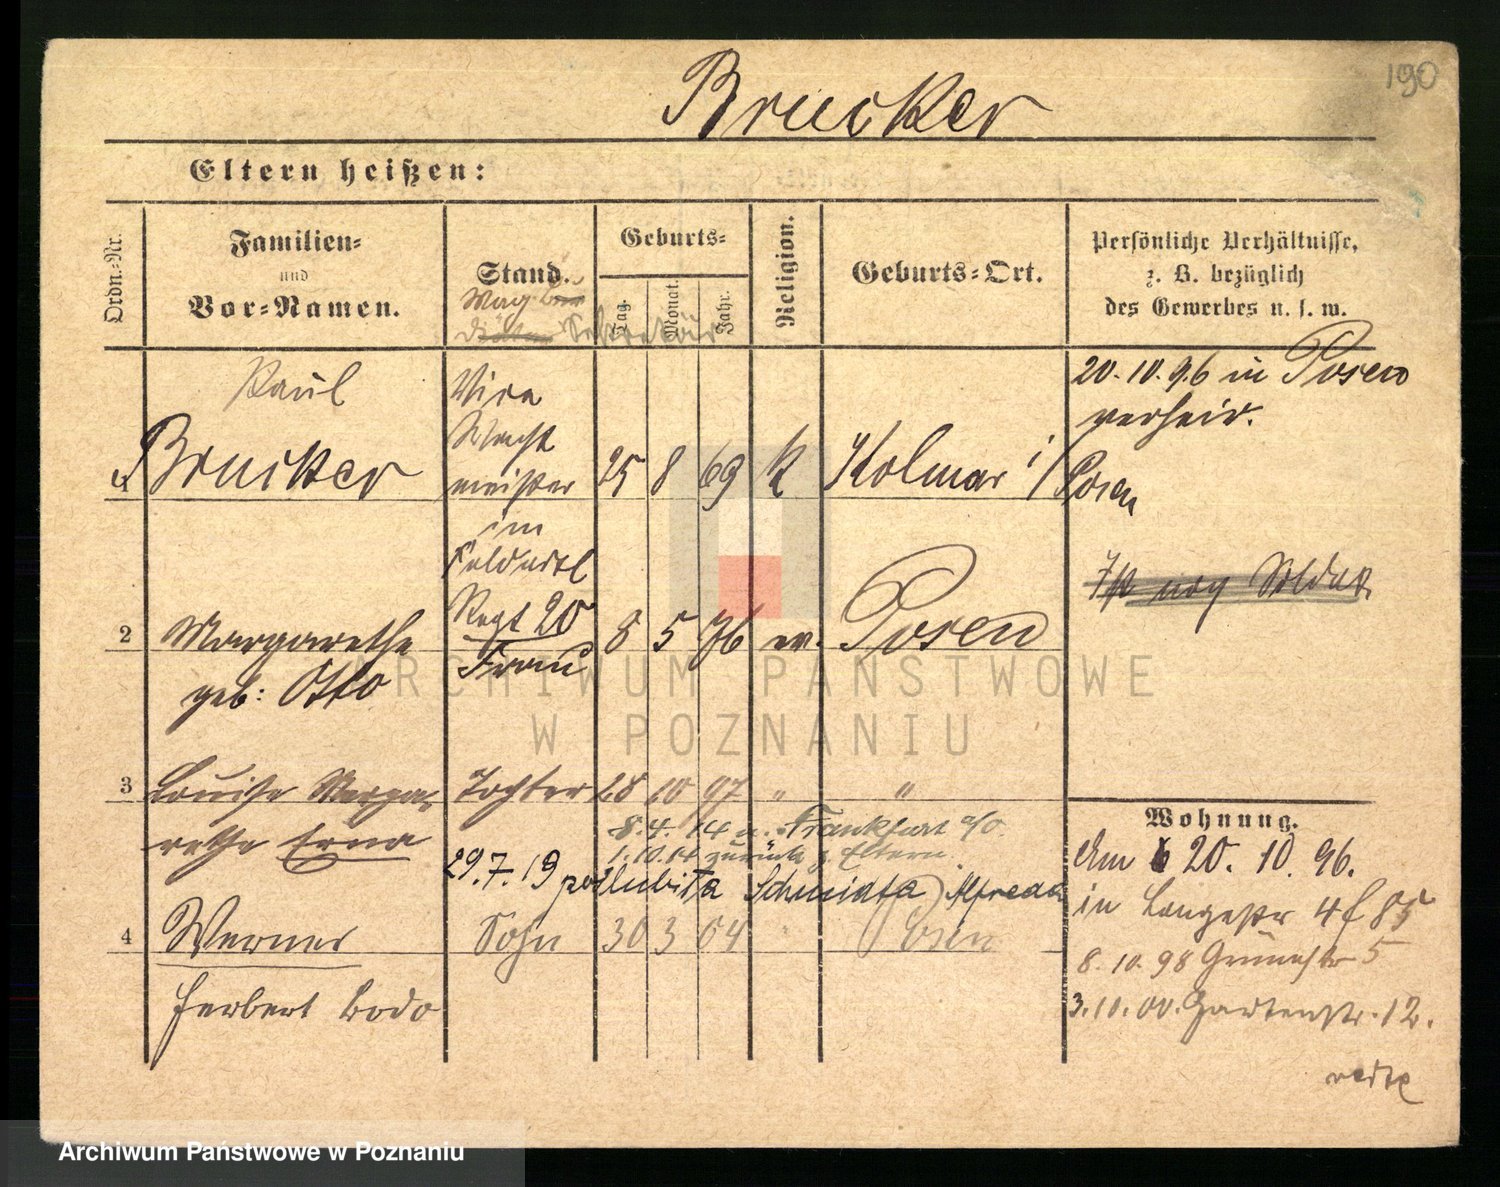 190
Brucker
Eltern heißen:
Ordn.-Nr.
Familien-
und
Vor-Namen.
Stand.
Mag.
Sekretär
Geburts-
Tag.
Monat.
Jahr.
Religion.
Geburts-Ort.
Persönliche Verhältnisse,
z. B. bezüglich
des Gewerbes u. s. w.
1
Paul
Brucker
Vice
Wacht
meister
im
Feldartl
Regt 20
25 8 69 k Kolmar i/Posen
20. 10. 96 in Posen
verheir.
Ist noch Soldat
2
Margarethe
geb: Otto
Frau
8 5 76 ev. Posen
3
Louise Marga-
rethe Erna
Tochter 28 10 97 " "
8.4. 14 n. Frankfurt a/O.
1.10.14 zurück z. Eltern.
29.7.19 poślubiła Schmidta Alfreda
4
Werner
Herbert Bodo
Sohn 30 3 04 " Posen
Wohnung.
Am 20. 10. 96.
in Langestr 4 f 85
8. 10. 98 Grünestr 5
3.10.00. Gartenstr. 12.
ARCHIWUM PAŃSTWOWE
W POZNANIU
Archiwum Państwowe w Poznaniu